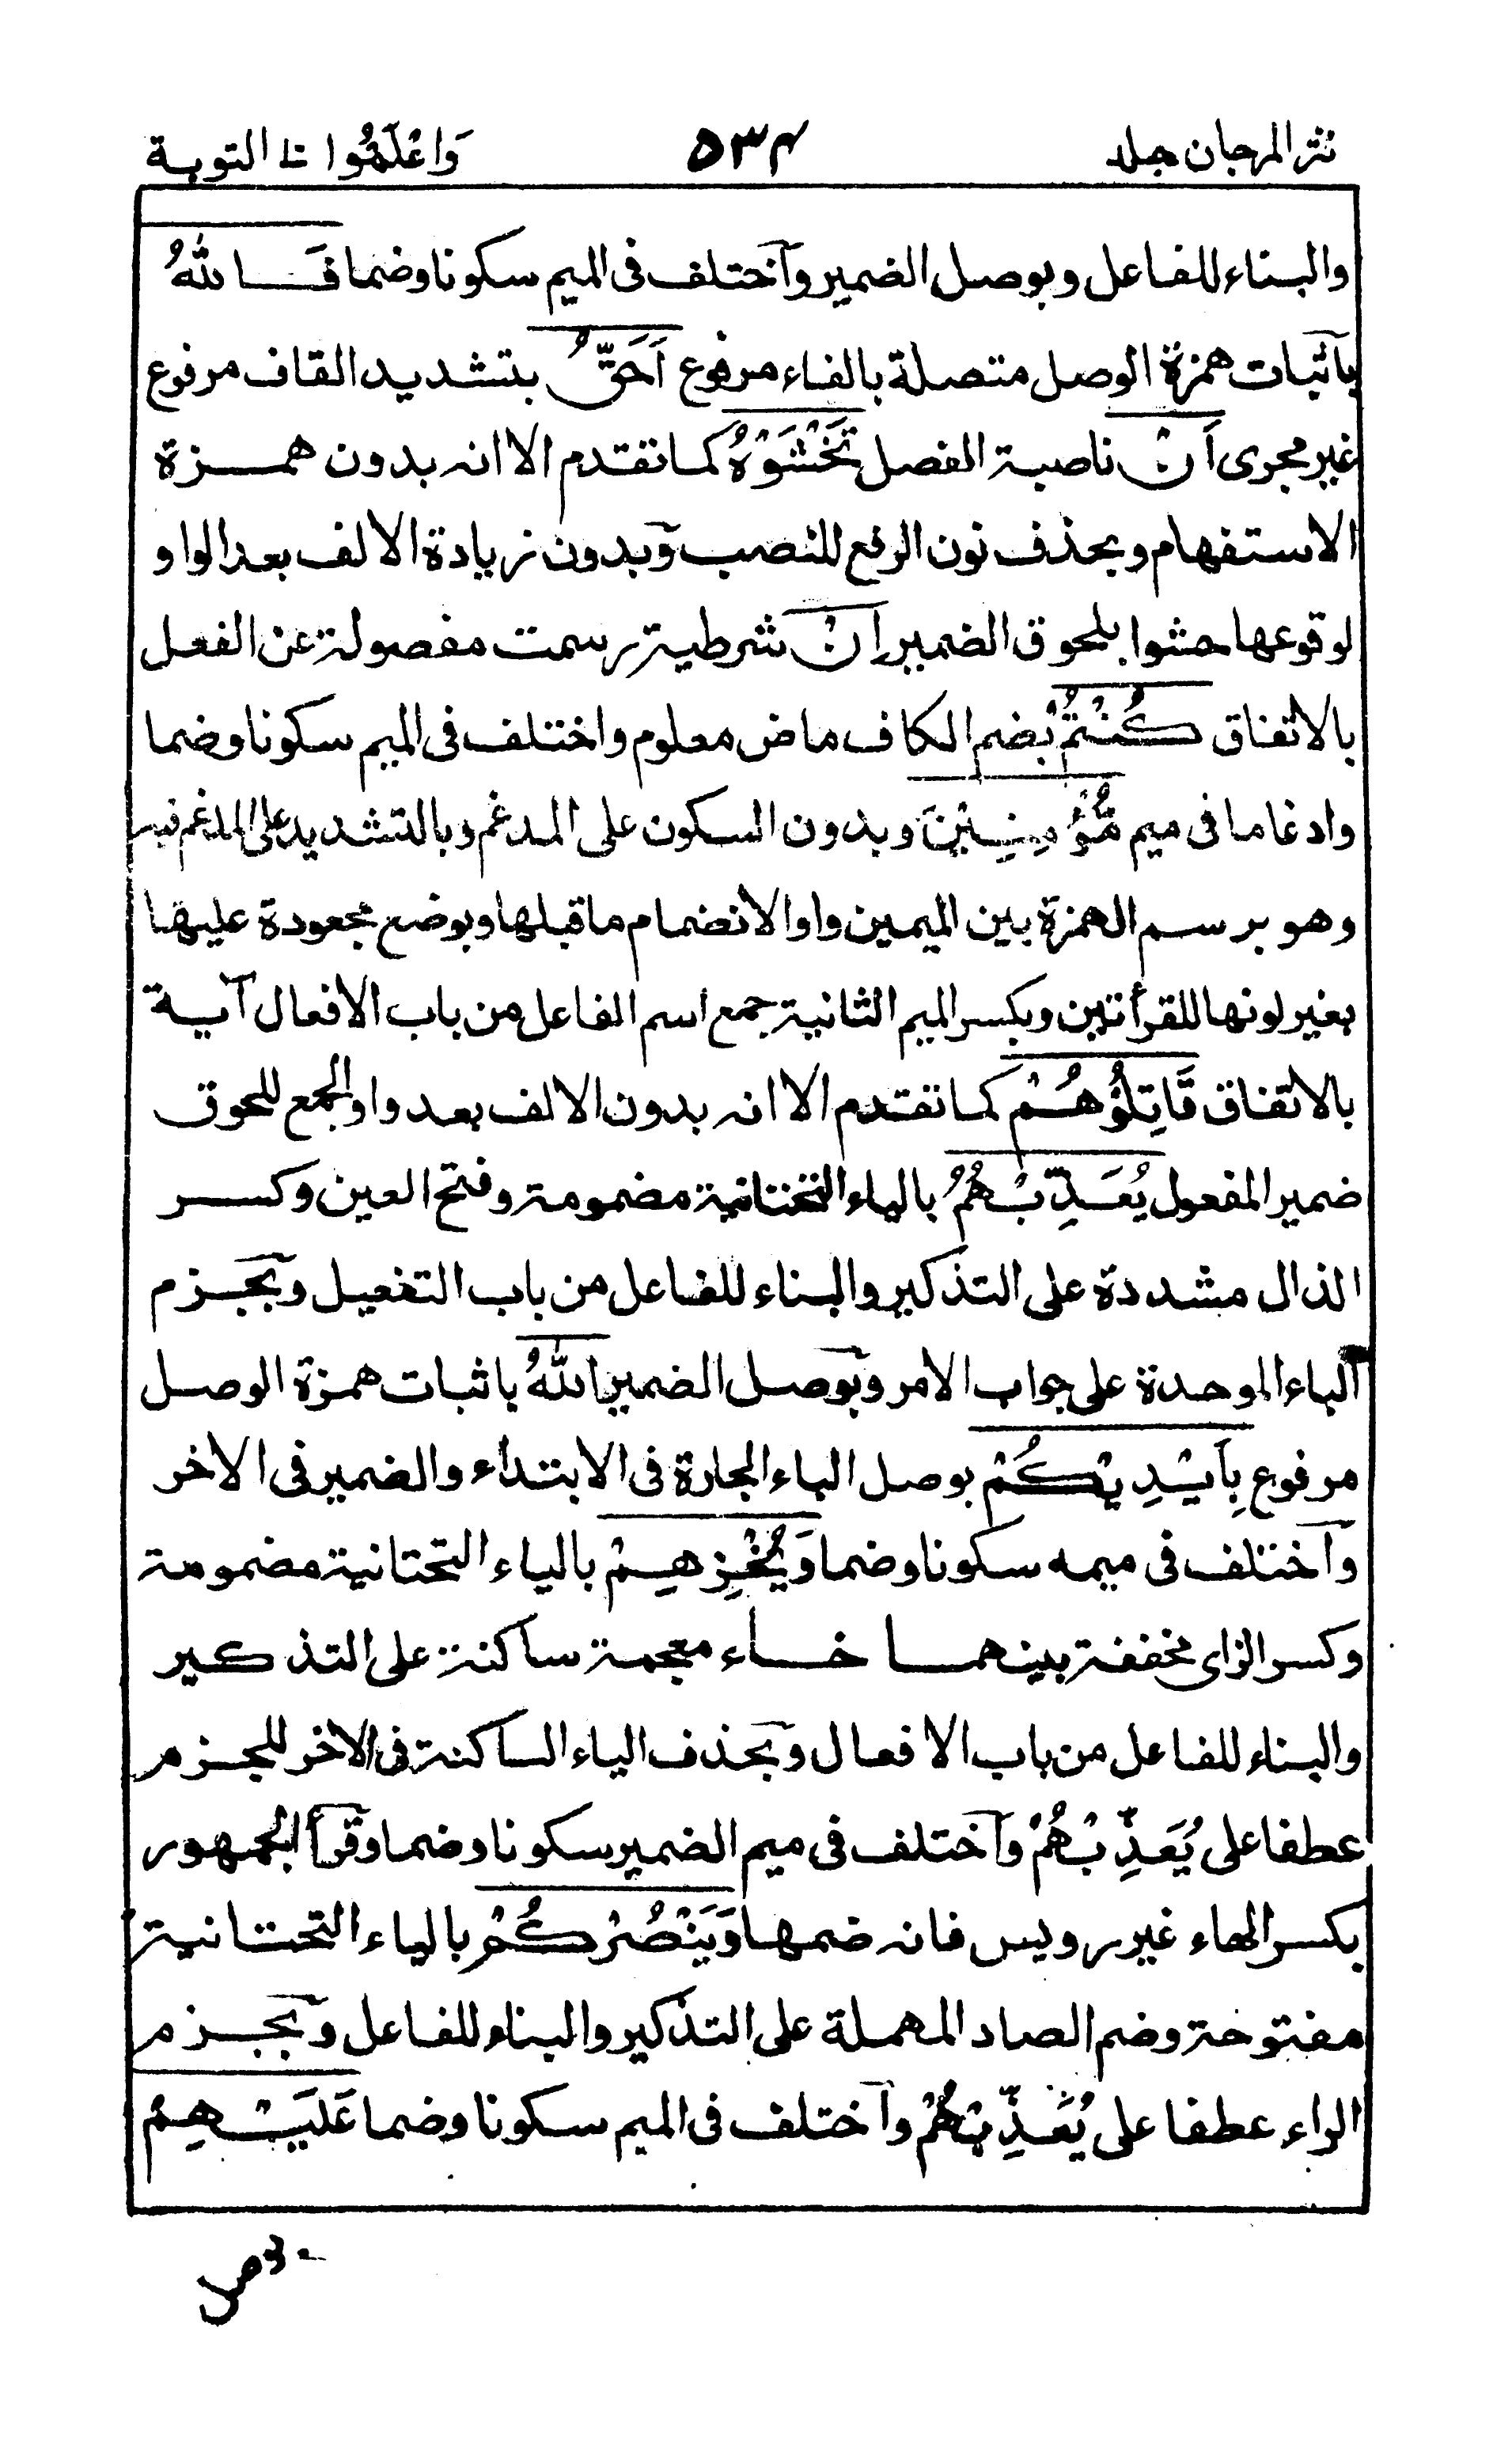 نثر المرجان جلد ٥٣٤ وَاعْلَمُوا ١٠ التوبة
والبناء للفاعل وبوصل الضمير وآختلف فى الميم سكونا وضما فَاللهُ
بآثبات همزة الوصل متصلة بالفاء مرفوع اَحَقُّ بتشديد القاف مرفوع
غير مجرى اَنْ ناصبة الفصل تَخْشَوْهُ كما تقدم الا انه بدون همزة
الاستفهام وبحذف نون الرفع للنصب وبدون زيادة الالف بعد الواو
لوقوعها حشوا بلحوق الضمير اِنْ شرطية رسمت مفصولة عن الفعل
بالاتفاق كُنْتُمْ بضم الكاف ماض معلوم واختلف فى الميم سكونا وضما
وادغاما فى ميم مُّؤْمِنِيْنَ وبدون السكون على المدغم وبالتشديد على المدغم فيه
وهو برسم الهمزة بين الميمين واوا لانضمام ما قبلها وبوضع مجعودة عليها
بغير لونها للقرأتين وبكسر الميم الثانية جمع اسم الفاعل من باب الافعال آية
بالاتفاق قَاتِلُوْهُمْ كما تقدم الا انه بدون الالف بعد واو الجمع للحوق
ضمير المفعول يُعَذِّبْهُمُ بالياء التحتانية مضمومة وفتح العين وكسر
الذال مشددة على التذكير والبناء للفاعل من باب التفعيل وبجزم
الباء الموحدة على جواب الامر وبوصل الضمير اللهُ باثبات همزة الوصل
مرفوع بِاَيْدِيْكُمْ بوصل الباء الجارة فى الابتداء والضمير فى الاخر
وآختلف فى ميمه سكونا وضما وَيُخْزِهِمْ بالياء التحتانية مضمومة
وكسر الزاى مخففة بينهما خاء معجمة ساكنة على التذكير
والبناء للفاعل من باب الافعال وبحذف الياء الساكنة فى الاخر للجزم
عطفا على يُعَذِّبْهُمْ وآختلف فى ميم الضمير سكونا وضما وقرأ الجمهور
بكسر الهاء غير رويس فانه ضمها وَيَنْصُرْكُمْ بالياء التحتانية
مفتوحة وضم الصاد المهملة على التذكير والبناء للفاعل وبجزم
الراء عطفا على يُعَذِّبْهُمْ وآختلف فى الميم سكونا وضما عَلَيْهِمْ